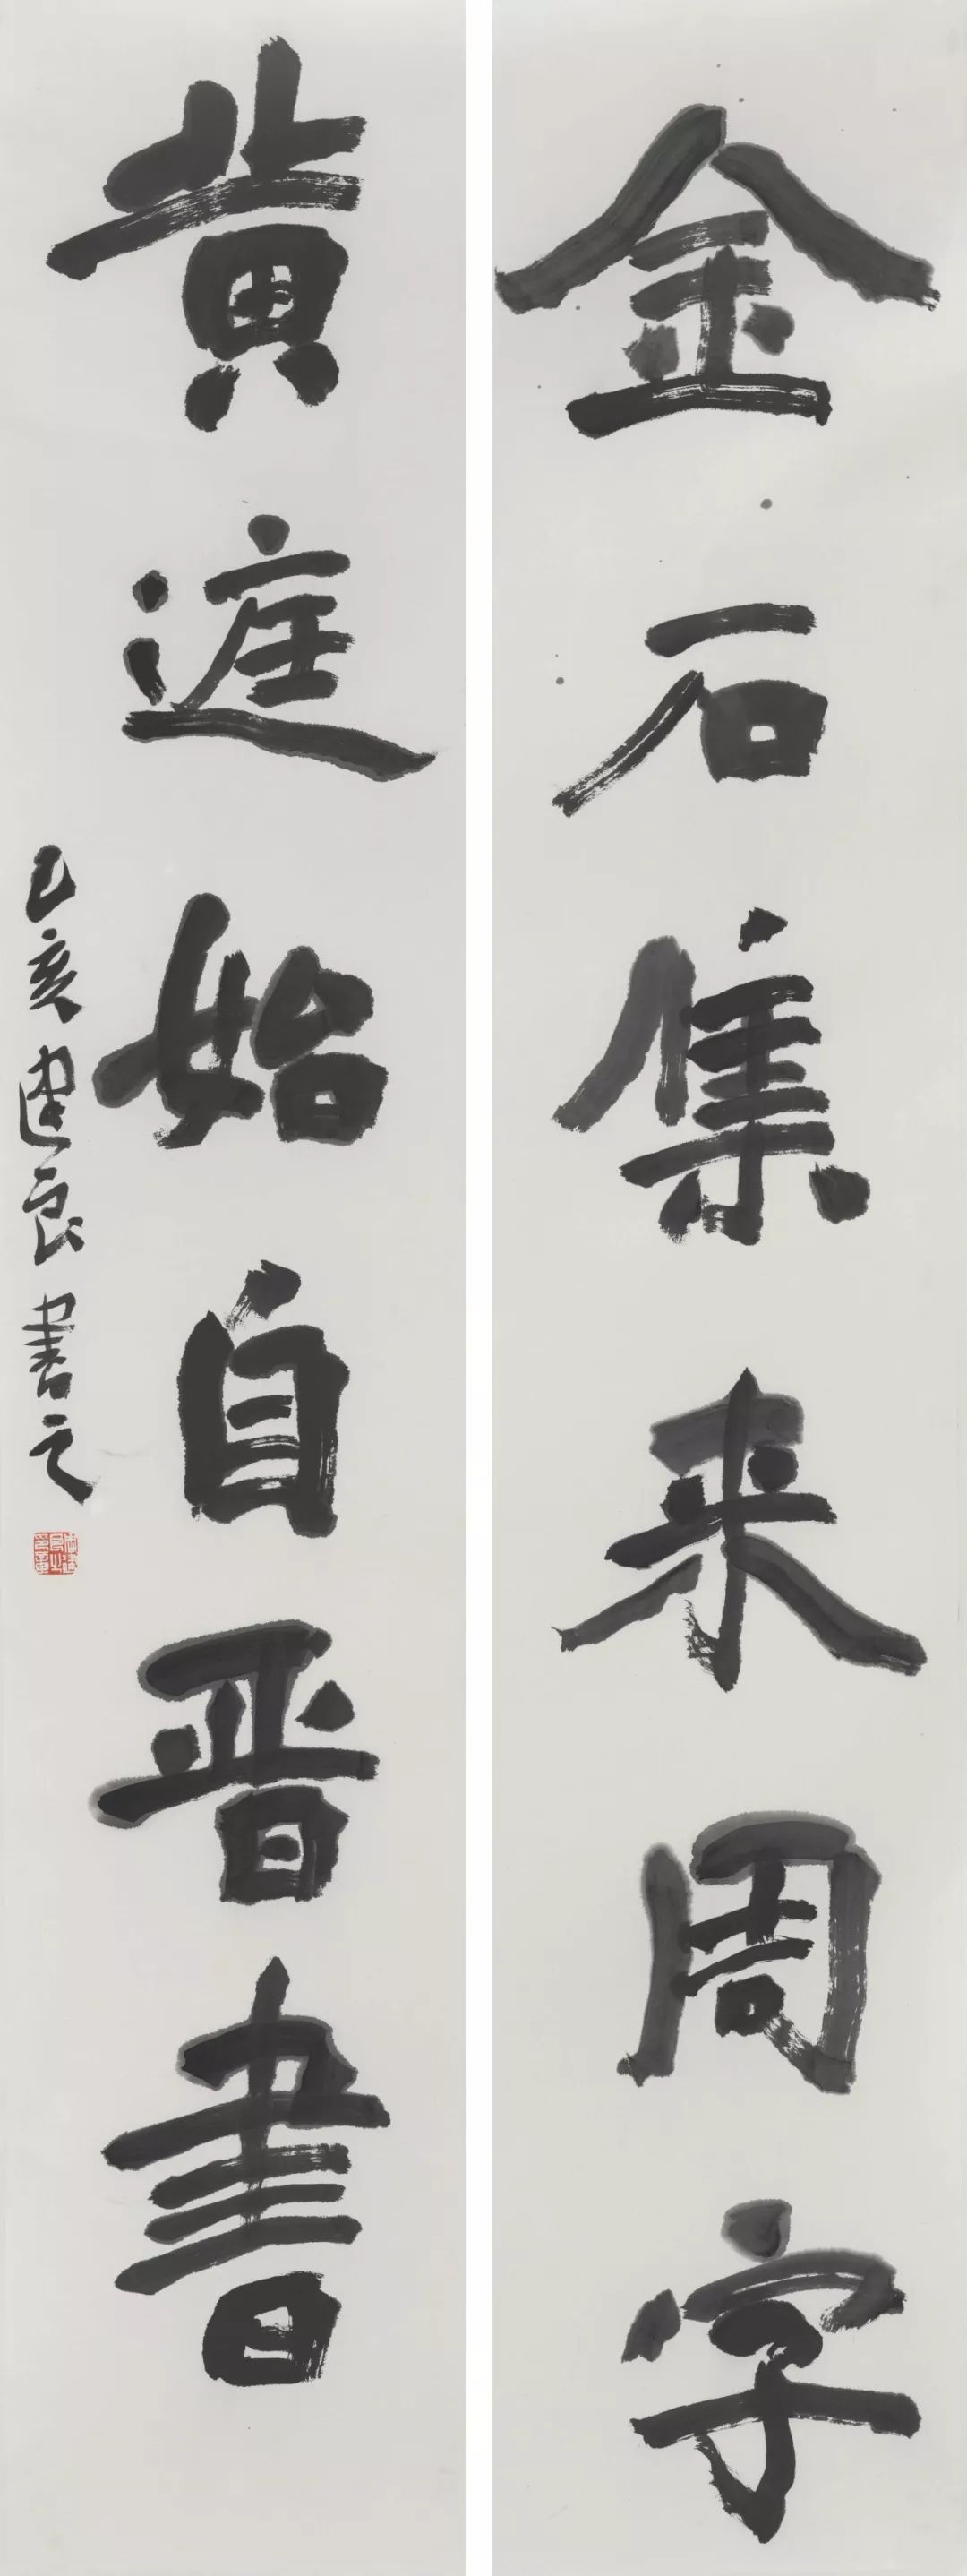 金石集来周字
黄庭始自晋書
己亥建良書之